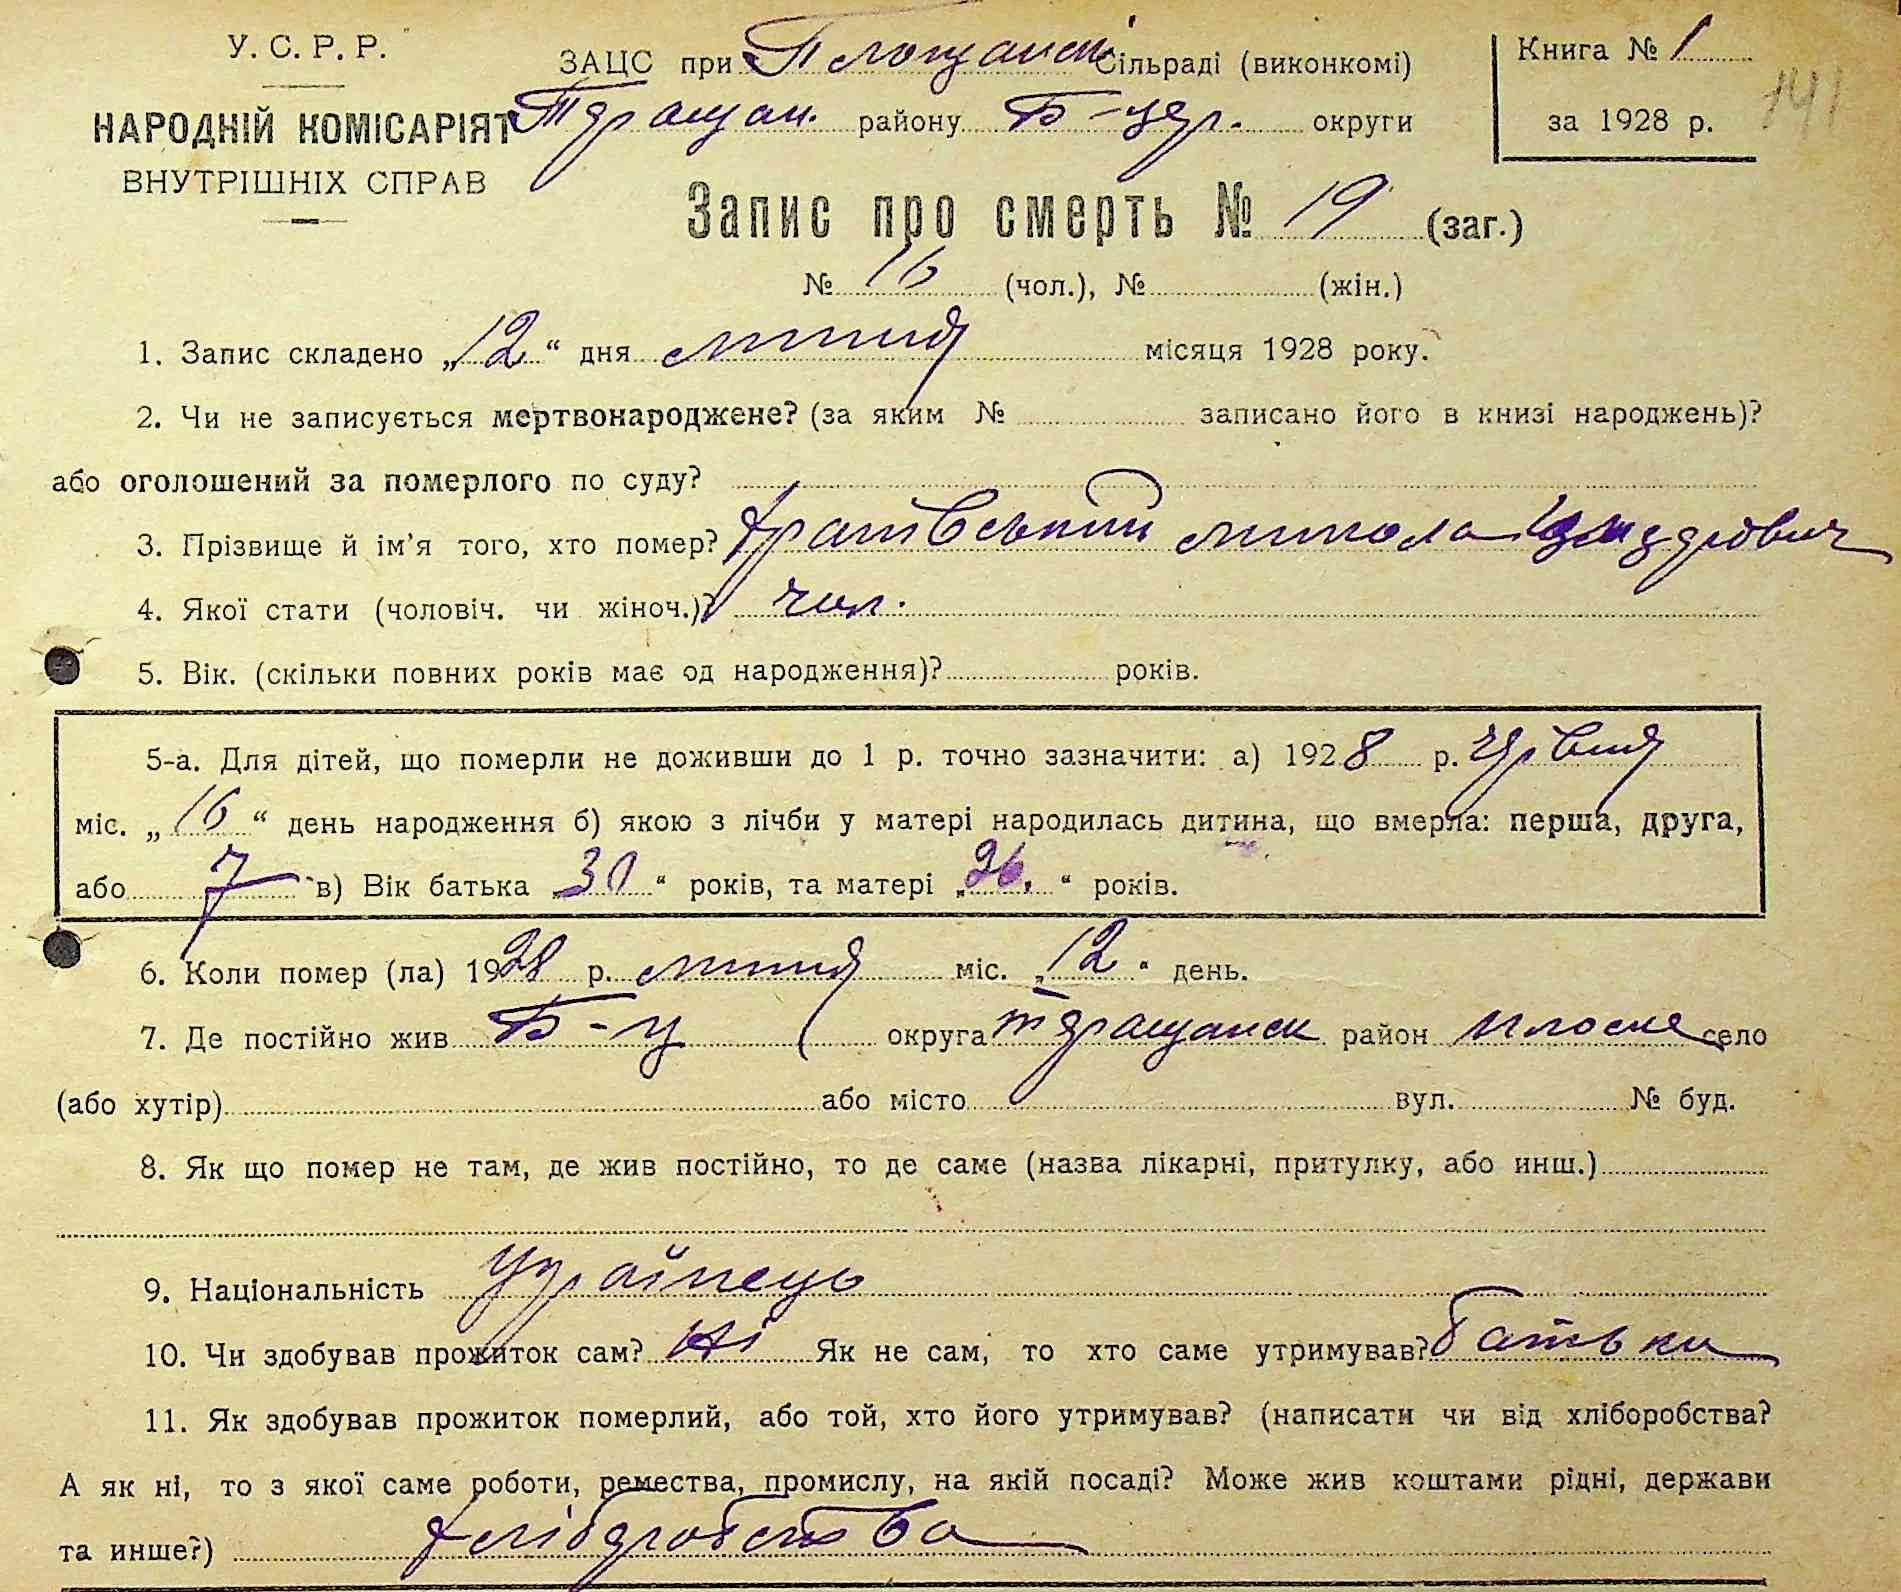 У. С. Р. Р.
НАРОДНІЙ КОМІСАРІЯТ
ВНУТРІШНІХ СПРАВ
ЗАЦС при Площанск Сільраді (виконкомі)
Таращан. району Б-Цер. округи
Книга № 1
за 1928 р.
141
Запис про смерть № 19 (заг.)
№ 16 (чол.), № (жін.)
1. Запис складено „12“ дня липня місяця 1928 року.
2. Чи не записується мертвонароджене? (за яким № записано його в книзі народжень)?
або оголошений за померлого по суду?
3. Прізвище й ім'я того, хто помер? Микола
4. Якої стати (чоловіч. чи жіноч.)? чол.
5. Вік. (скільки повних років має од народження)? років.
5-а. Для дітей, що померли не доживши до 1 р. точно зазначити: а) 1928 р. червня
міс. „16“ день народження б) якою з лічби у матері народилась дитина, що вмерла: перша, друга,
або 7 в) Вік батька „30“ років, та матері „26.“ років.
6. Коли помер (ла) 1928 р. липня міс. „12“ день.
7. Де постійно жив Б-Ц округа Таращанск район Плоске село
(або хутір) або місто вул. № буд.
8. Як що помер не там, де жив постійно, то де саме (назва лікарні, притулку, або инш.)
9. Національність українець
10. Чи здобував прожиток сам? Ні Як не сам, то хто саме утримував? батьки
11. Як здобував прожиток померлий, або той, хто його утримував? (написати чи від хліборобства?
А як ні, то з якої саме роботи, ремества, промислу, на якій посаді? Може жив коштами рідні, держави
та инше?) хліборобства